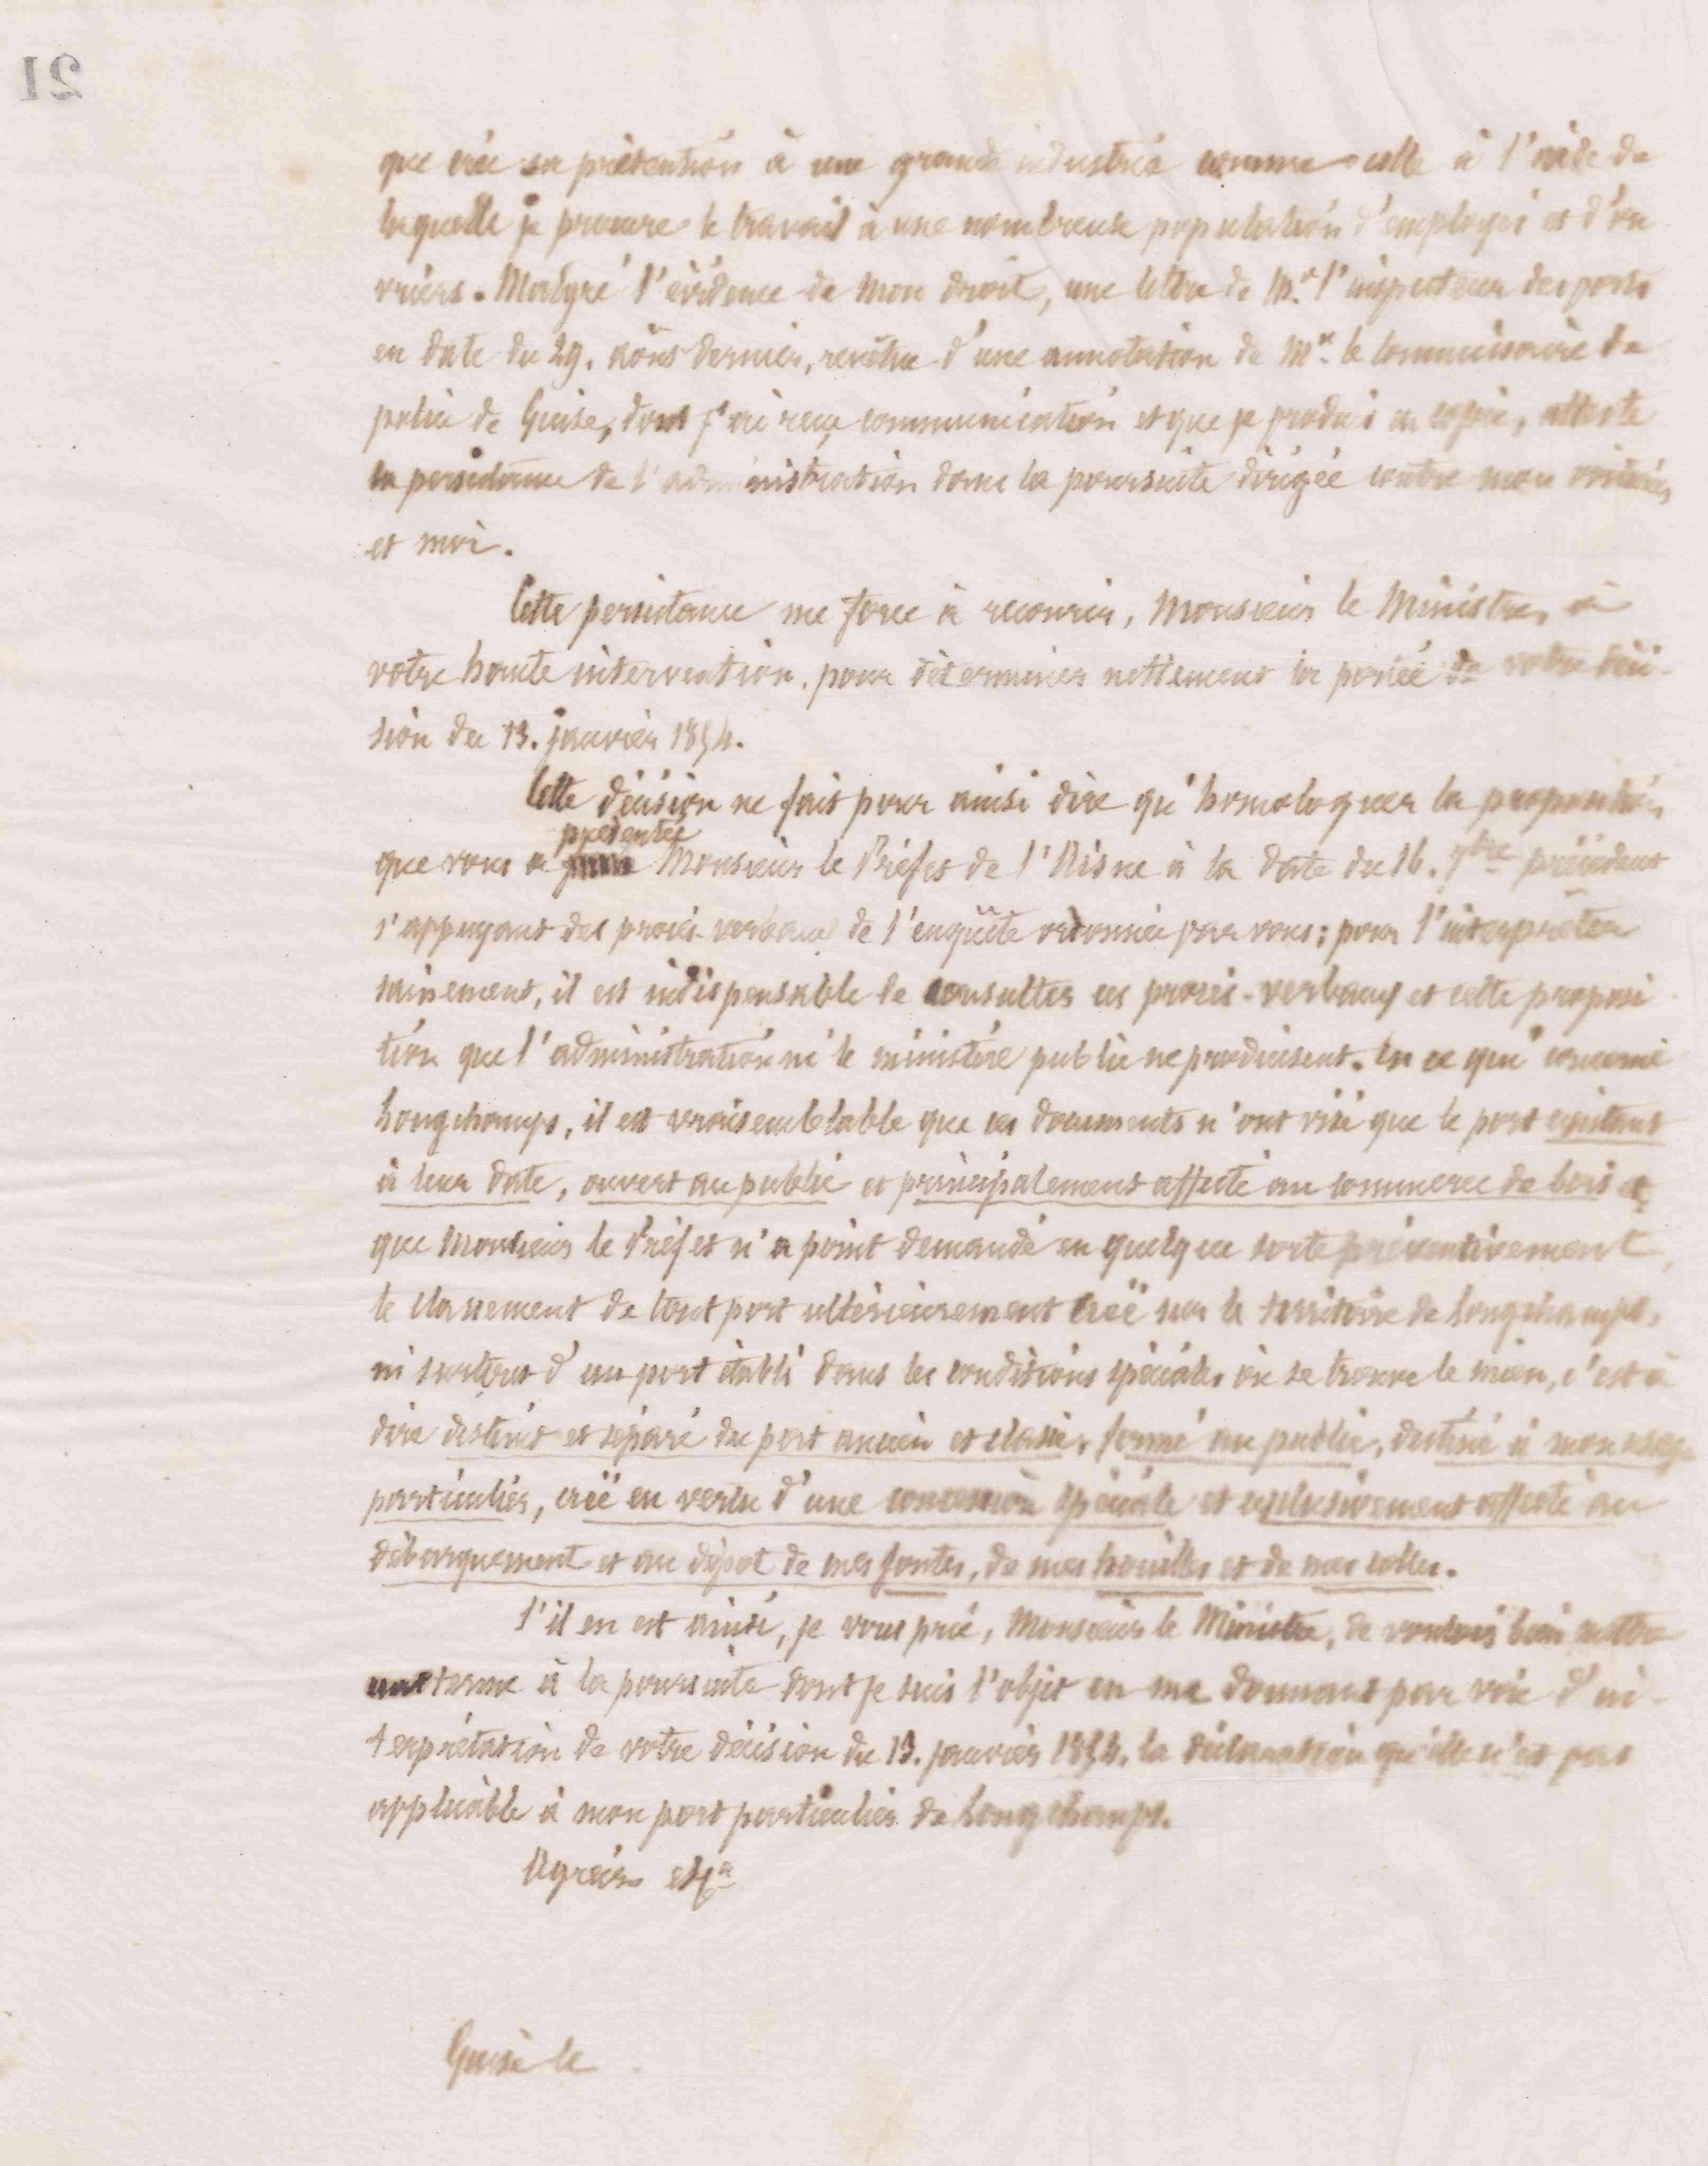 21
que crée sa prétention à une grande industrie comme celle à l'aide de
laquelle je procure le travail à une nombreuse population d'employés et d'ou
vriers. Malgré l'évidence de mon droit, une lettre de M.r l'inspecteur des ports
en date du 29. août dernier, revêtue d'une annotation de Mr. le Commissaire de
police de Guise, dont j'ai reçu communication et que je produis en copie, atteste
la persistance de l'administration dans la poursuite dirigée contre mon voiturier
et moi.
Cette persistance me force à recourir, Monsieur le Ministre, à
votre haute intervention, pour déterminer nettement la portée de votre déci-
sion du 13. janvier 1854.
Cette décision ne fait pour ainsi dire qu'homologuer la proposition
présentée
que vous a Monsieur le Préfet de l'Aisne à la date du 16. 7bre précédent
s'appuyant des procès-verbaux de l'enquête ordonnée par vous; pour l'interpréter
sainement, il est indispensable de consulter ces procès-verbaux et cette proposi
tion que l'administration ni le ministère public ne produisent. En ce qui concerne
Longchamps, il est vraisemblable que ces documents n'ont visé que le port existant
à leur date, ouvert au public et principalement affecté au commerce de bois et
que Monsieur le Préfet n'a point demandé en quelque sorte préventivement,
le classement de tout port ultérieurement créé sur le territoire de Longchamps,
ni surtout d'un port établi dans les conditions spéciales où se trouve le mien, c'est à
dire distinct et séparé du port ancien et classé, fermé au public, destiné à mon usage
particulier, créé en vertu d'une concession spéciale et exclusivement affecté au
débarquement et au dépôt de mes fontes, de mes houilles et de mes cokes.
S'il en est ainsi, je vous prie, Monsieur le Ministre, de vouloir bien mettre
un terme à la poursuite dont je suis l'objet en me donnant par voie d'in-
terprétation de votre décision du 13. janvier 1854. la déclaration qu'elle n'est pas
applicable à mon port particulier de Longchamps.
Agréez etca
Guise le